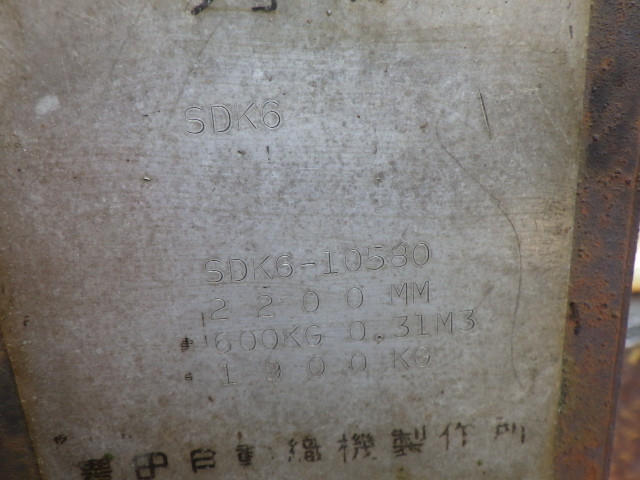 SDK6
SDK6-10580
2200MM
600KG 0.31M3
1900KG
豊田自動織機製作所